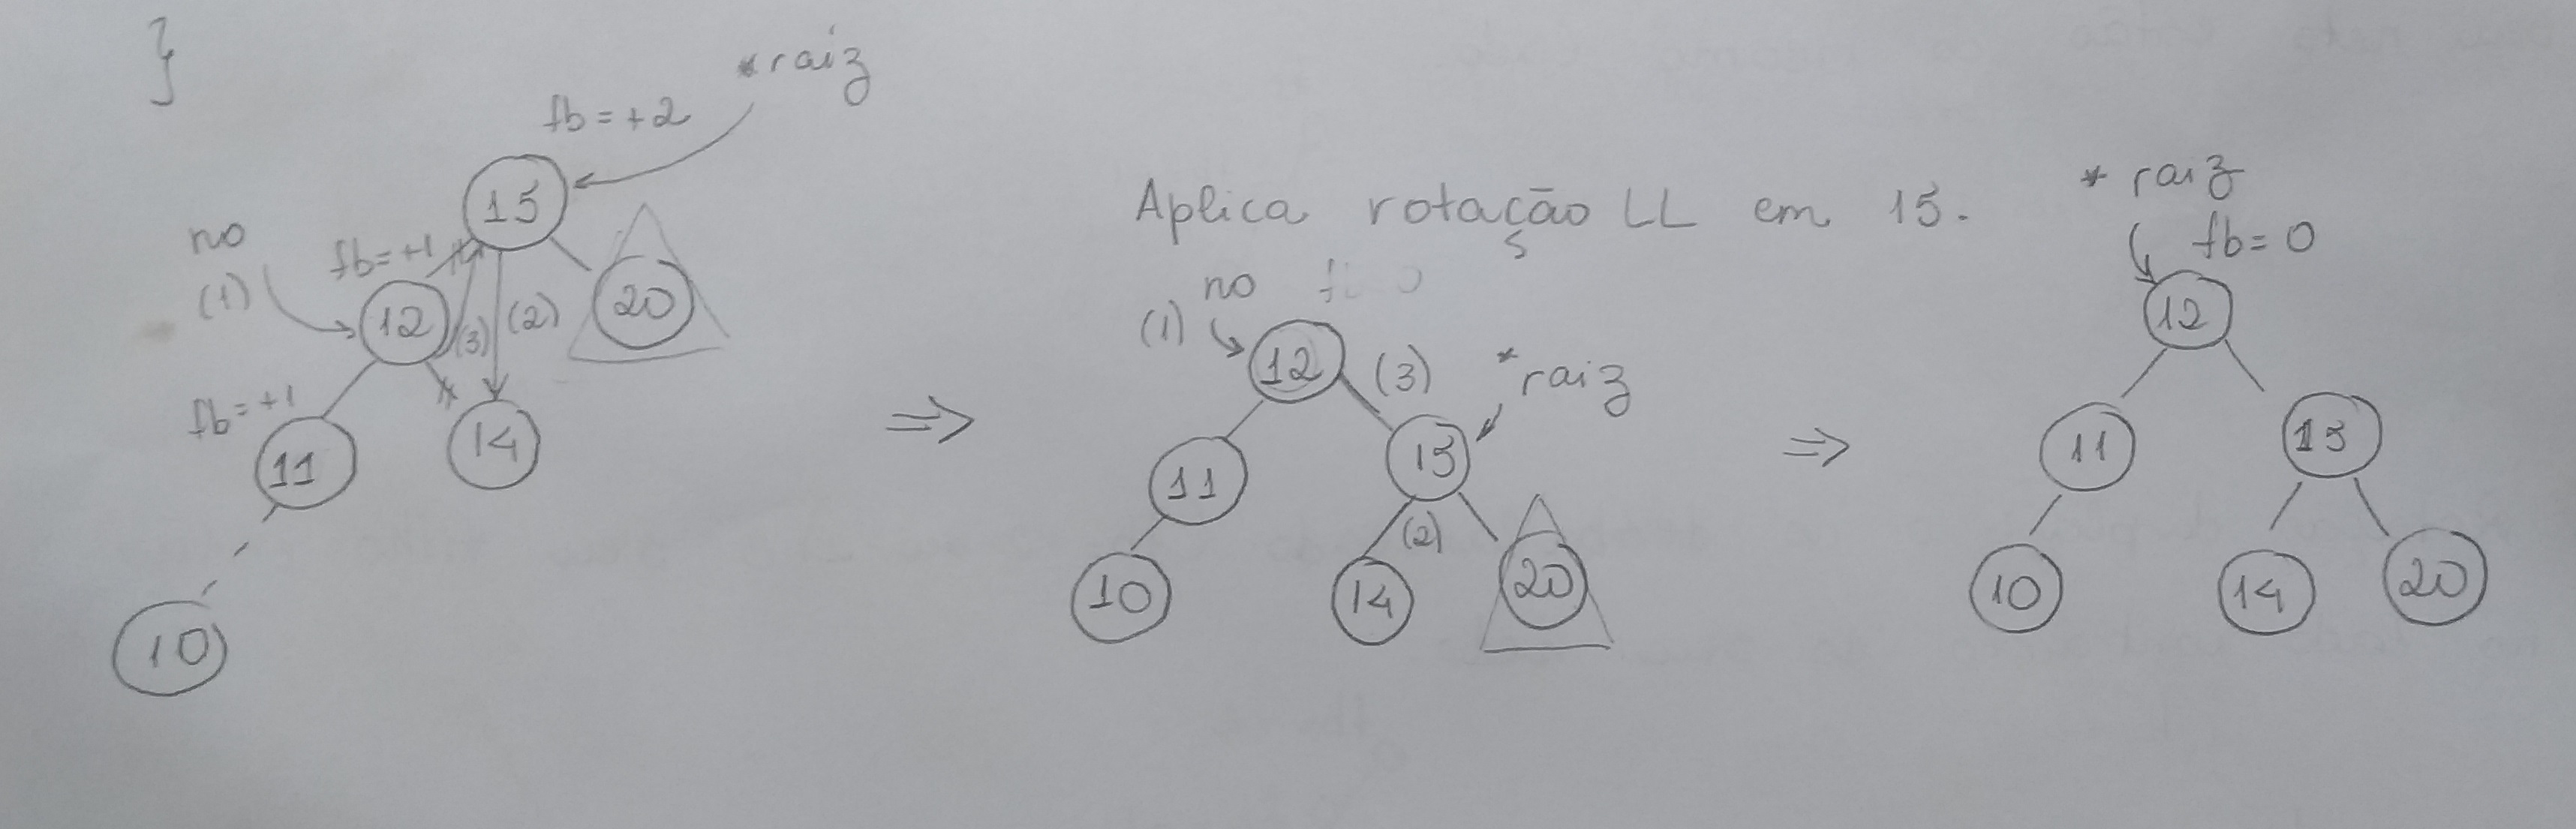 }
*raiz
fb = +2
15
no
(1)
fb = +1
12
(3)
(2)
20
fb = +1
11
14
10
⇒
Aplica rotação LL em 15.
no
(1)
12
(3)
*raiz
11
15
(2)
10
14
20
⇒
* raiz
fb = 0
12
11
15
10
14
20